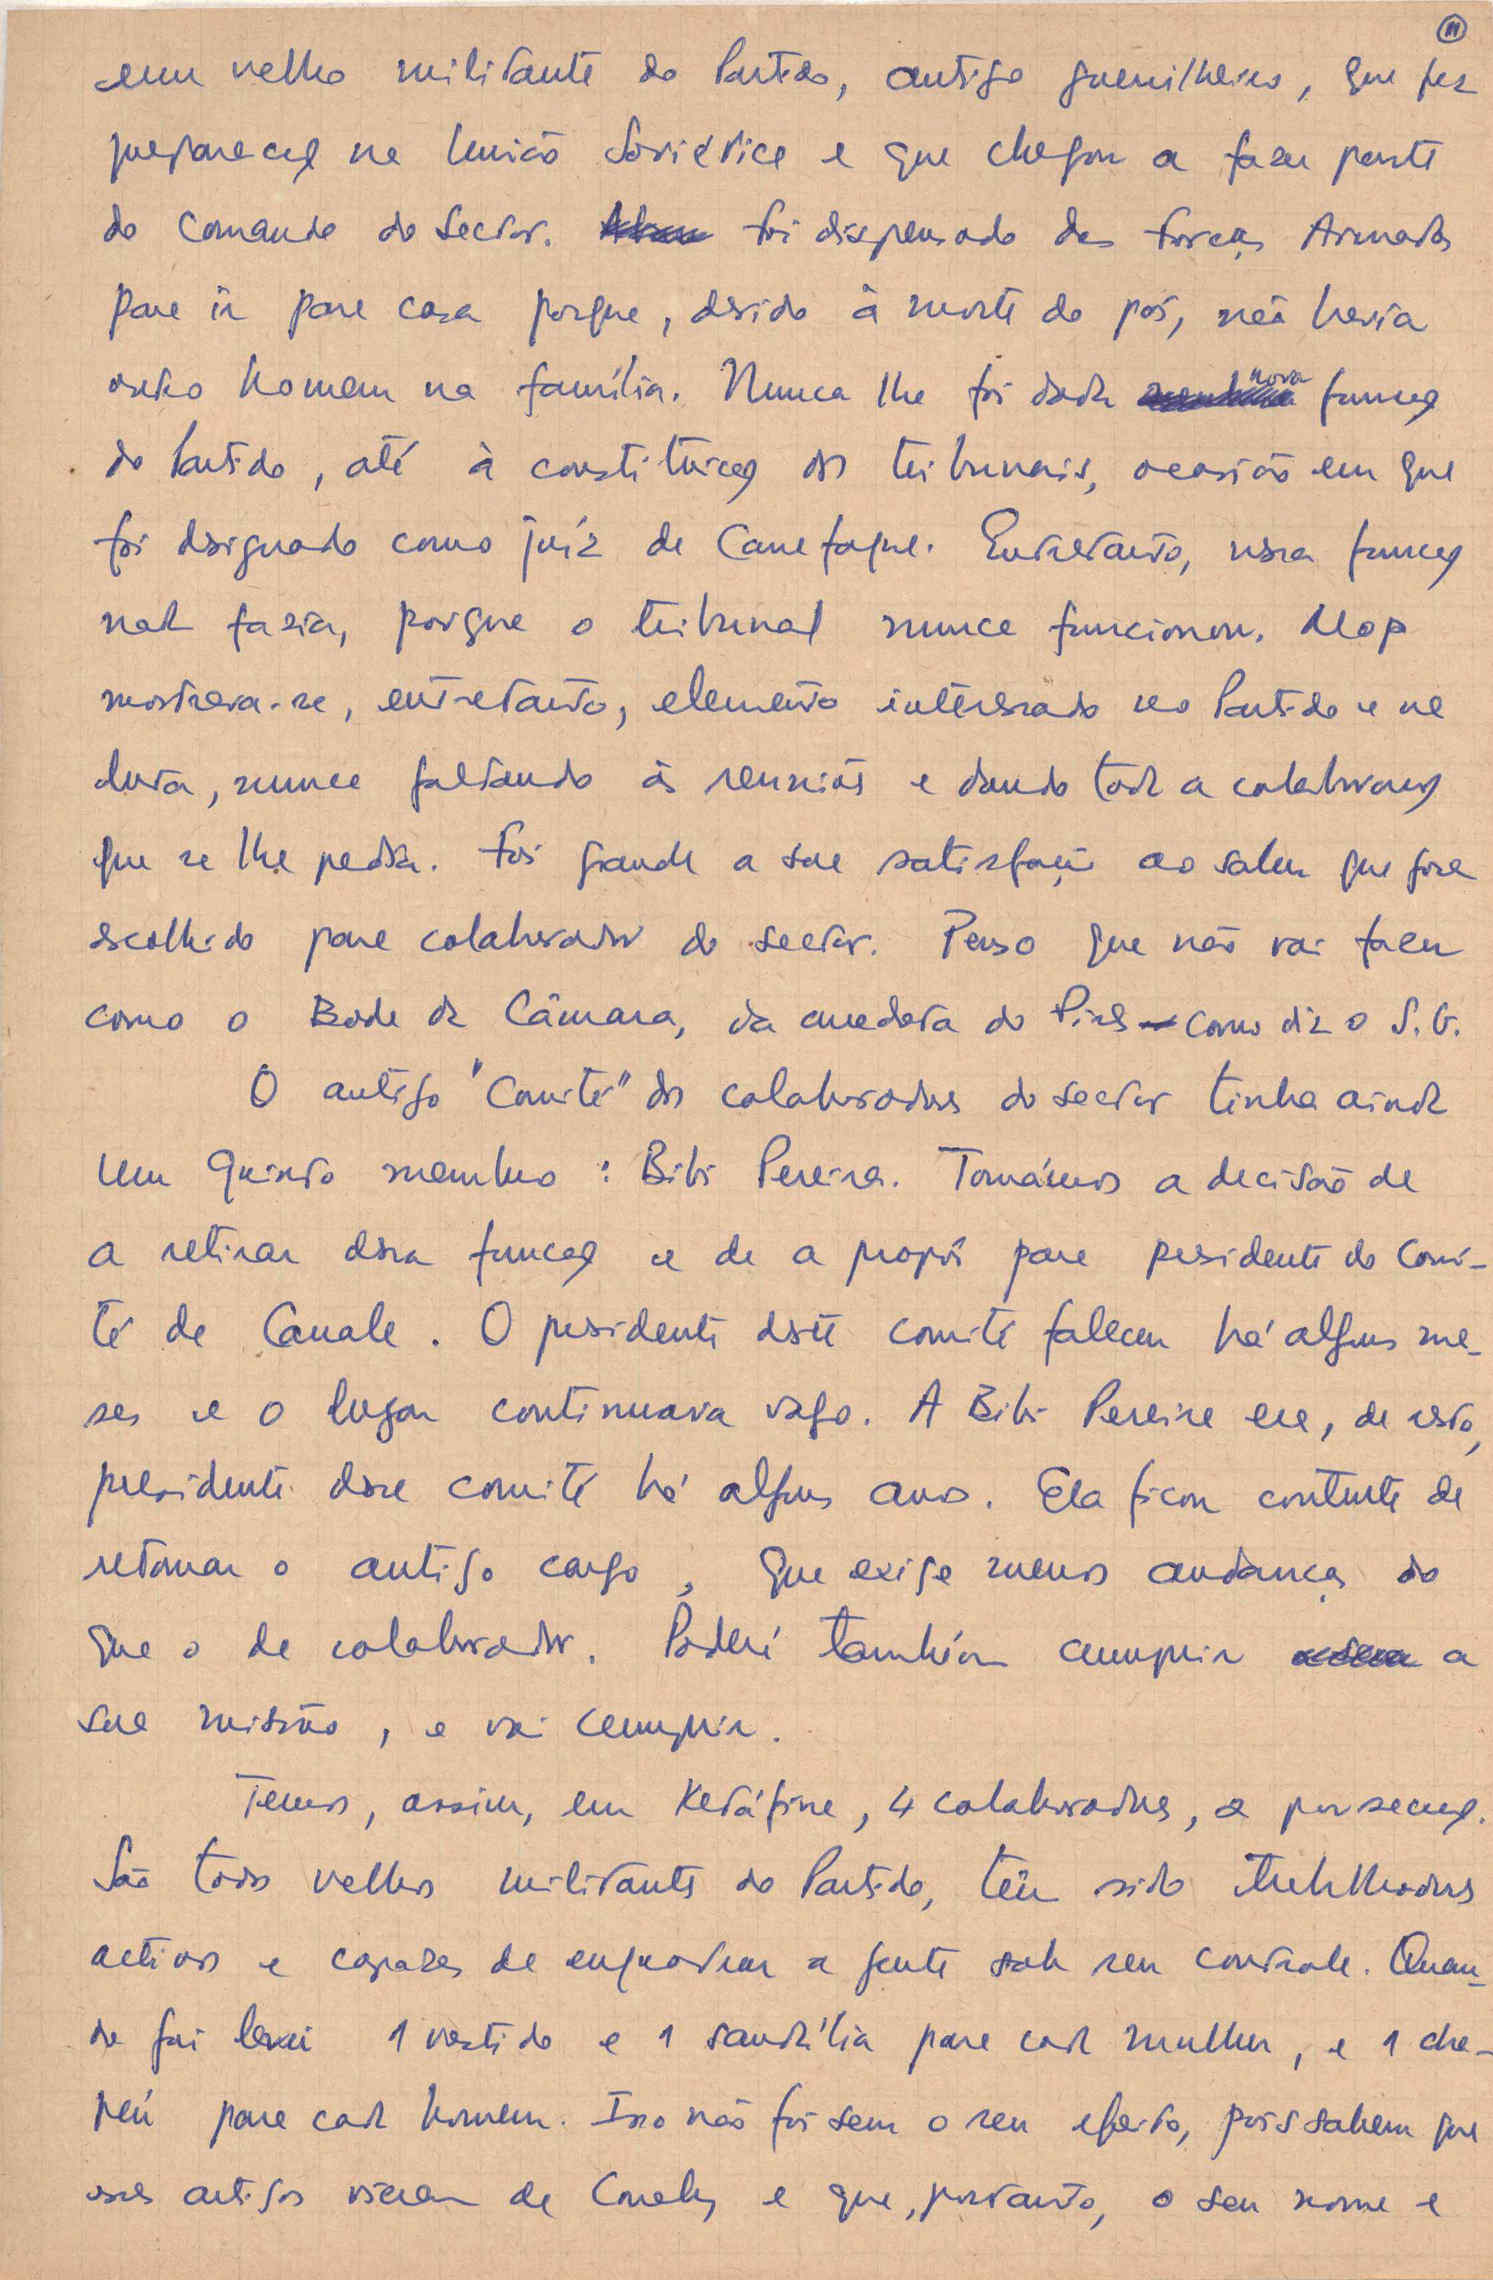 11
um velho militante do Partido, antigo guerrilheiro, que fez
preparação na União Soviética e que chegou a fazer parte
do Comando do Sector. foi dispensado das Forças Armadas
para ir para casa porque, devido à morte do pai, não havia
outro homem na família. Nunca lhe foi dada nova função
do Partido, até à constituição dos tribunais, ocasião em que
foi designado como juíz de Canefaque. Entretanto, nessa função
nada fazia, porque o tribunal nunca funcionou. Mas
mostrava-se, entretanto, elemento interessado no Partido e na
luta, nunca faltando às reuniões e dando toda a colaboração
que se lhe pedia. Foi grande a sua satisfação ao saber que fora
escolhido para colaborador do sector. Penso que não vai fazer
como o Bode da Câmara, da anedota do Pires — como diz o S.G.
O antigo "Comité" dos colaboradores do sector tinha ainda
um quinto membro: Bibi Pereira. Tomámos a decisão de
a retirar dessa função e de a propôr para presidente do Comi-
té de Canale. O presidente deste comité faleceu há alguns me-
ses e o lugar continuava vago. A Bibi Pereira era, de resto,
presidente desse comité há alguns anos. Ela ficou contente de
retomar o antigo cargo, que exige menos andanças do
que o de colaborador. Poderá também cumprir a
sua missão, e vai cumprir.
Temos, assim, em Ketáfine, 4 colaboradores, 2 por secção.
São todos velhos militantes do Partido, têm sido trabalhadores
activos e capazes de enquadrar a gente sob seu controle. Quan-
do fui levei 1 vestido e 1 sandália para cada mulher, e 1 cha-
péu para cada homem. Isso não foi sem o seu efeito, pois sabem que
esses artigos vieram de Conakry e que, portanto, o seu nome e